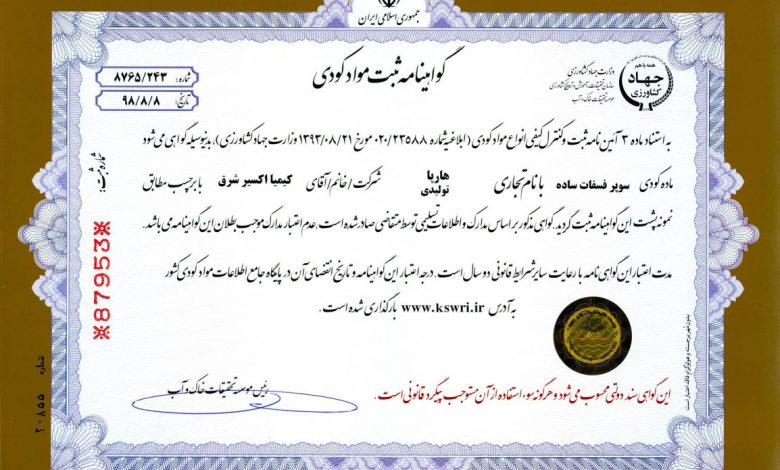 جمهوری اسلامی ایران
گواهینامه ثبت مواد کودی
شماره: ۸۷۶۵/۲۴۳
تاریخ: ۹۸/۸/۸
همه با هم
جهاد
کشاورزی
وزارت جهاد کشاورزی
سازمان تحقیقات، آموزش و ترویج کشاورزی
موسسه تحقیقات خاک و آب
به استناد ماده ۳ آئین نامه ثبت و کنترل کیفی انواع مواد کودی (ابلاغیه شماره ۰۲۰/۲۳۵۸۸ مورخ ۱۳۹۳/۰۸/۲۱ وزارت جهاد کشاورزی)، بدینوسیله گواهی می شود
ماده کودی سوپر فسفات ساده با نام تجاری هارپا تولیدی شرکت/خانم/آقای کیمیا اکسیر شرق با برچسب مطابق
نمونه پشت این گواهینامه ثبت گردید. گواهی مذکور بر اساس مدارک و اطلاعات تسلیمی توسط متقاضی صادر شده است، عدم اعتبار مدارک موجب بطلان این گواهینامه می باشد.
مدت اعتبار این گواهی نامه با رعایت سایر شرایط قانونی دو سال است. درجه اعتبار این گواهینامه و تاریخ انقضای آن در پایگاه جامع اطلاعات مواد کودی کشور
به آدرس www.kswri.ir بارگذاری شده است.
رئیس موسسه تحقیقات خاک و آب
این گواهی سند دولتی محسوب می شود و هرگونه سوء استفاده از آن مستوجب پیگرد قانونی است.
شماره ثبت:
※87953※
شماره ۲۰۸۵۵
بدون مهر برجسته و هولوگرام فاقد اعتبار است